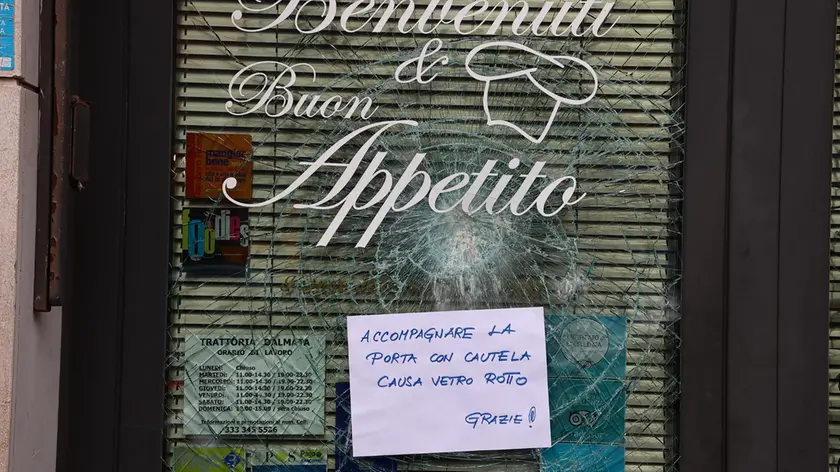 Benvenuti
&
Buon
Appetito
mangiar
bene
foodies
TRATTORIA DALMATA
ORARIO DI LAVORO
LUNEDI: Chiuso
MARTEDI: 11.00-14.30 / 19.00-22.30
MERCOLEDI: 11.00-14.30 / 19.00-22.30
GIOVEDI: 11.00-14.30 / 19.00-22.30
VENERDI: 11.00-14.30 / 19.00-22.30
SABATO: 11.00-14.30 / 19.00-22.30
DOMENICA: / sera chiuso
Informazioni e prenotazioni al num. Cell:
ACCOMPAGNARE LA
PORTA CON CAUTELA
CAUSA VETRO ROTTO
GRAZIE!